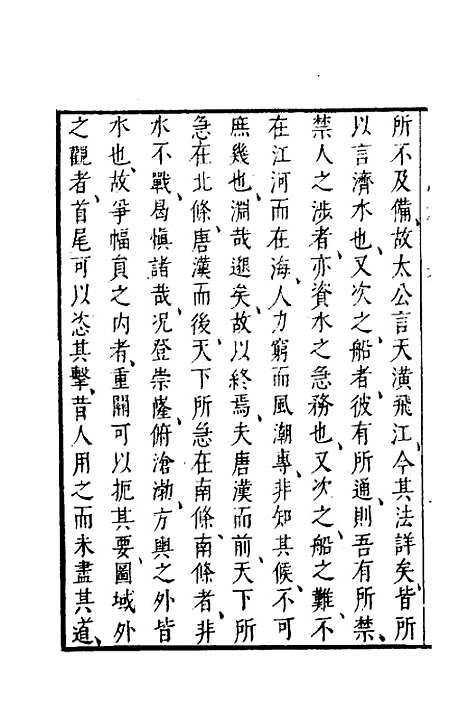 所不及備、故太公言天潢飛江、今其法詳矣、皆所
以言濟水也、又次之、船者、彼有所通、則吾有所禁、
禁人之涉者、亦資水之急務也、又次之、船之難、不
在江河而在海、人力窮而風潮專、非知其候、不可
庶幾也、淵哉邈矣、故以終焉、夫唐漢而前、天下所
急在北條、唐漢而後、天下所急在南條、南條者、非
水不戰、曷愼諸哉、况登崇隆、俯滄渤、方輿之外皆
水也、故爭幅員之內者、重關可以扼其要、圖域外
之觀者、首尾可以恣其擊、昔人用之而未盡其道、